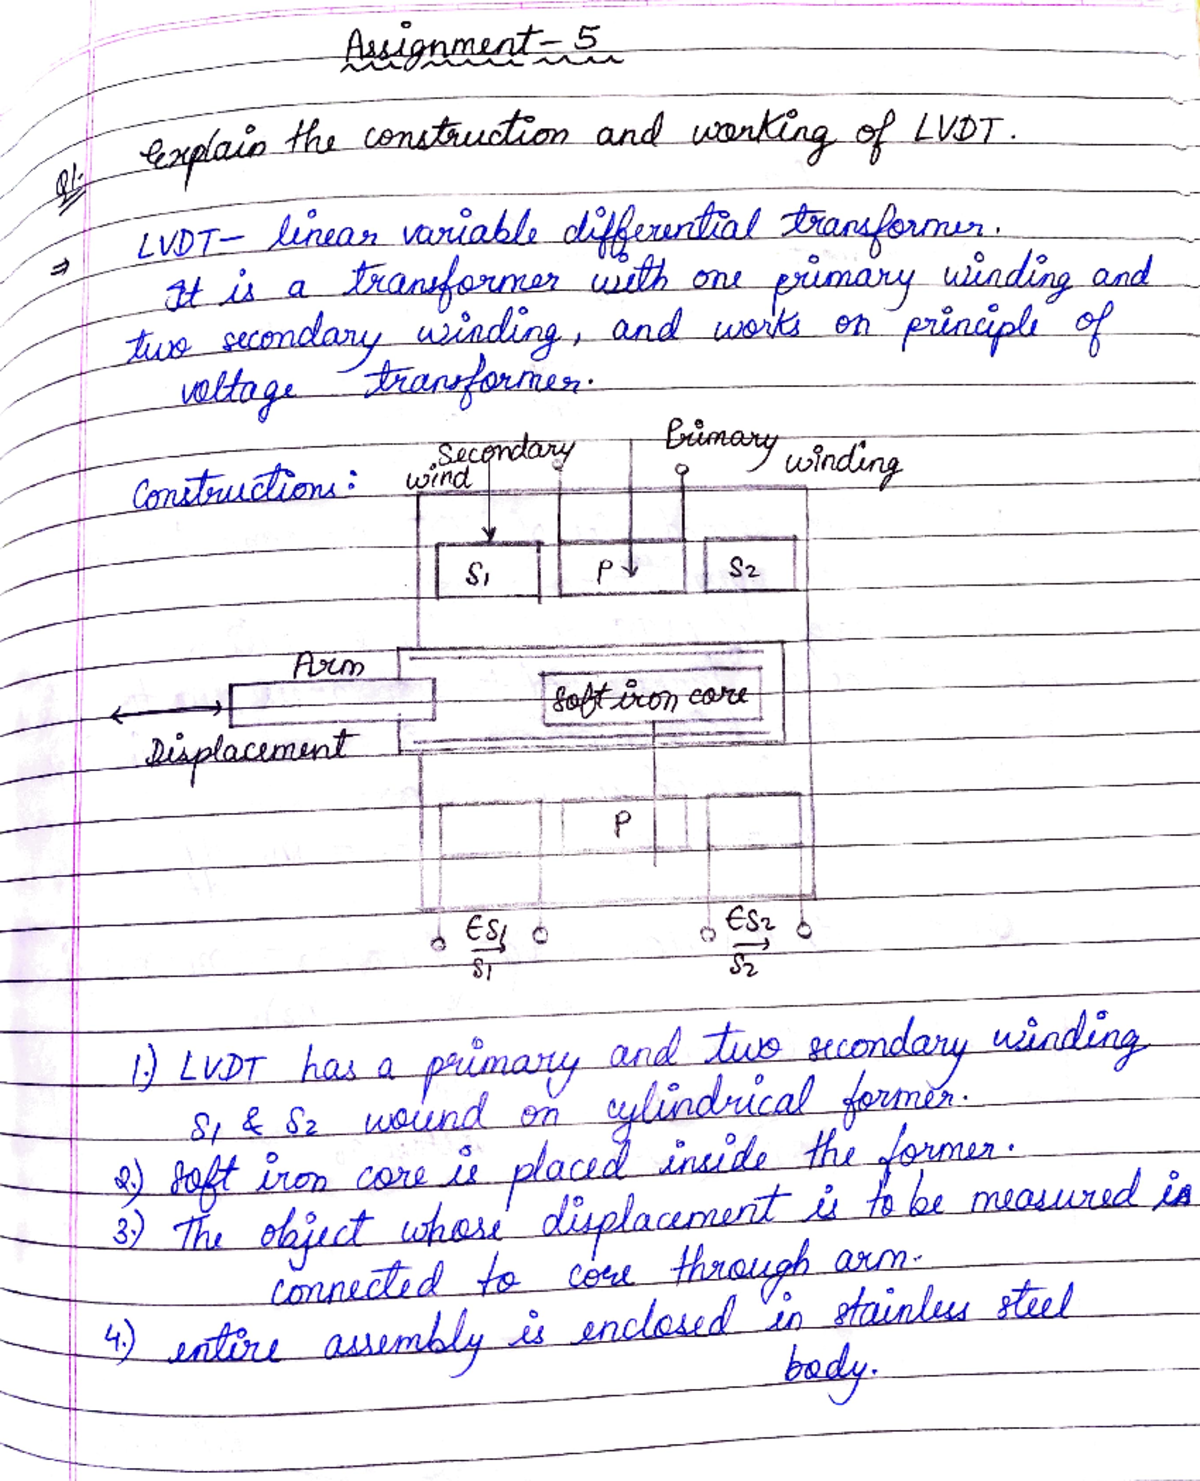 Assignment-5
Q1. Explain the construction and working of LVDT.
⇒ LVDT- linear variable differential transformer.
It is a transformer with one primary winding and
two secondary winding, and works on principle of
voltage transformer.
Constructions:
Secondary
wind
Primary
winding
S1 P S2
Arm
Soft iron core
Displacement
P
ES1 ES2
S1 S2
1.) LVDT has a primary and two secondary winding
S1 & S2 wound on cylindrical former.
2.) Soft iron core is placed inside the former.
3.) The object whose displacement is to be measured is
connected to core through arm.
4.) entire assembly is enclosed in stainless steel
body.